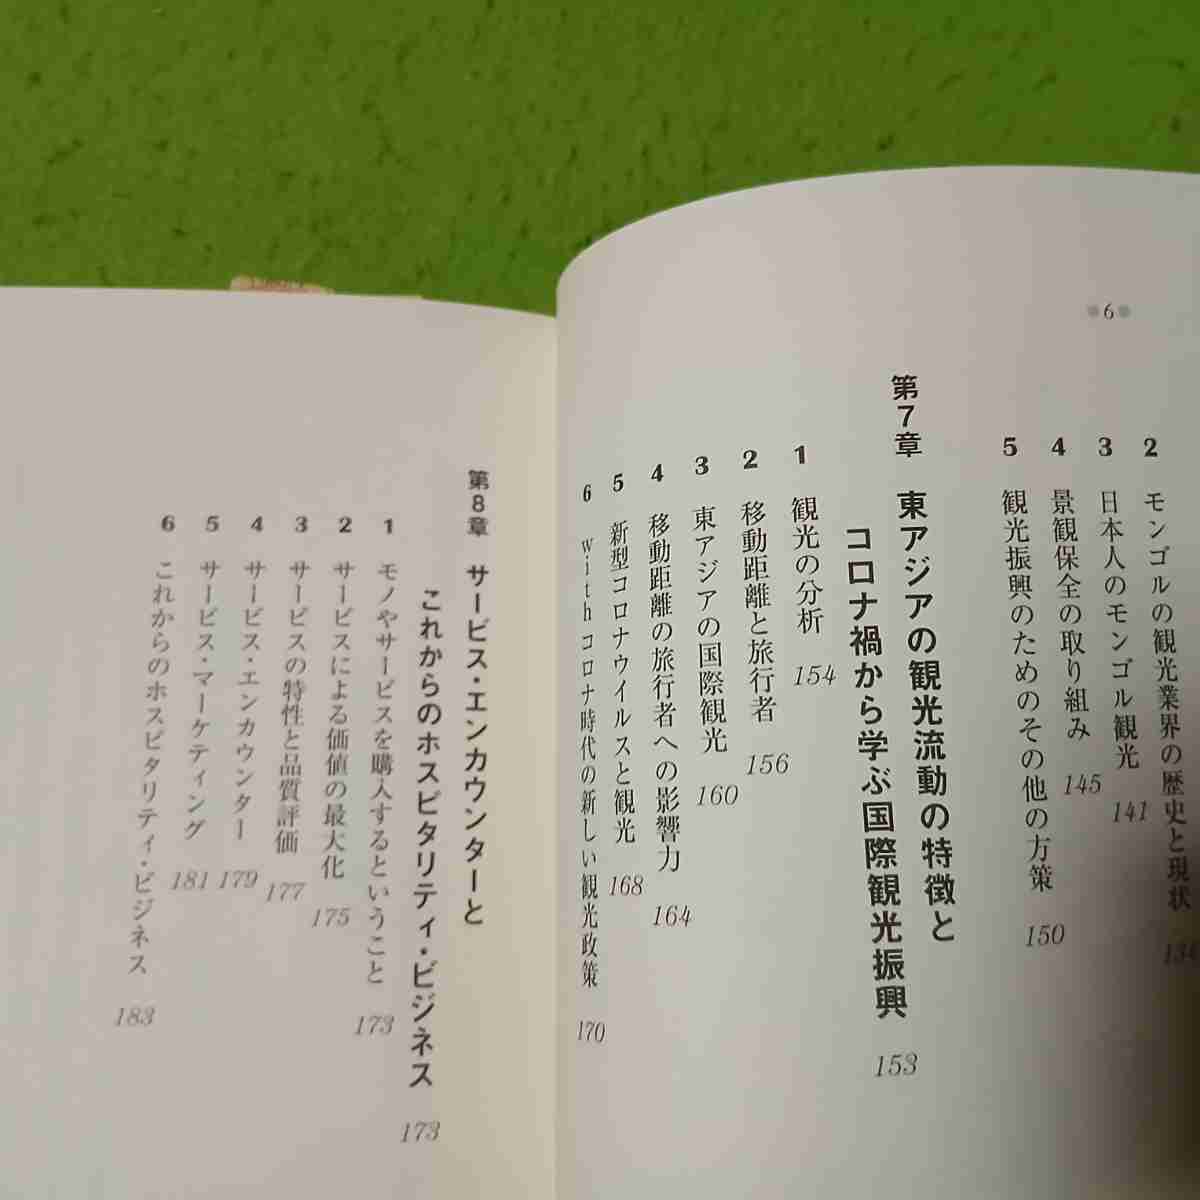 6
2 モンゴルの観光業界の歴史と現状 134
3 日本人のモンゴル観光 141
4 景観保全の取り組み 145
5 観光振興のためのその他の方策 150
第7章 東アジアの観光流動の特徴と
コロナ禍から学ぶ国際観光振興 153
1 観光の分析 154
2 移動距離と旅行者 156
3 東アジアの国際観光 160
4 移動距離の旅行者への影響力 164
5 新型コロナウイルスと観光 168
6 withコロナ時代の新しい観光政策 170
第8章 サービス・エンカウンターと
これからのホスピタリティ・ビジネス 173
1 モノやサービスを購入するということ 173
2 サービスによる価値の最大化 175
3 サービスの特性と品質評価 177
4 サービス・エンカウンター 179
5 サービス・マーケティング 181
6 これからのホスピタリティ・ビジネス 183